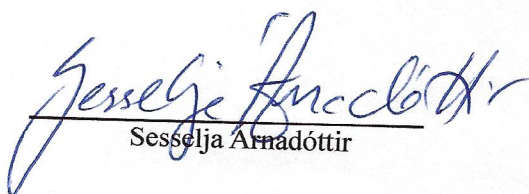 Sesselja Árnadóttir
Sesselja Árnadóttir